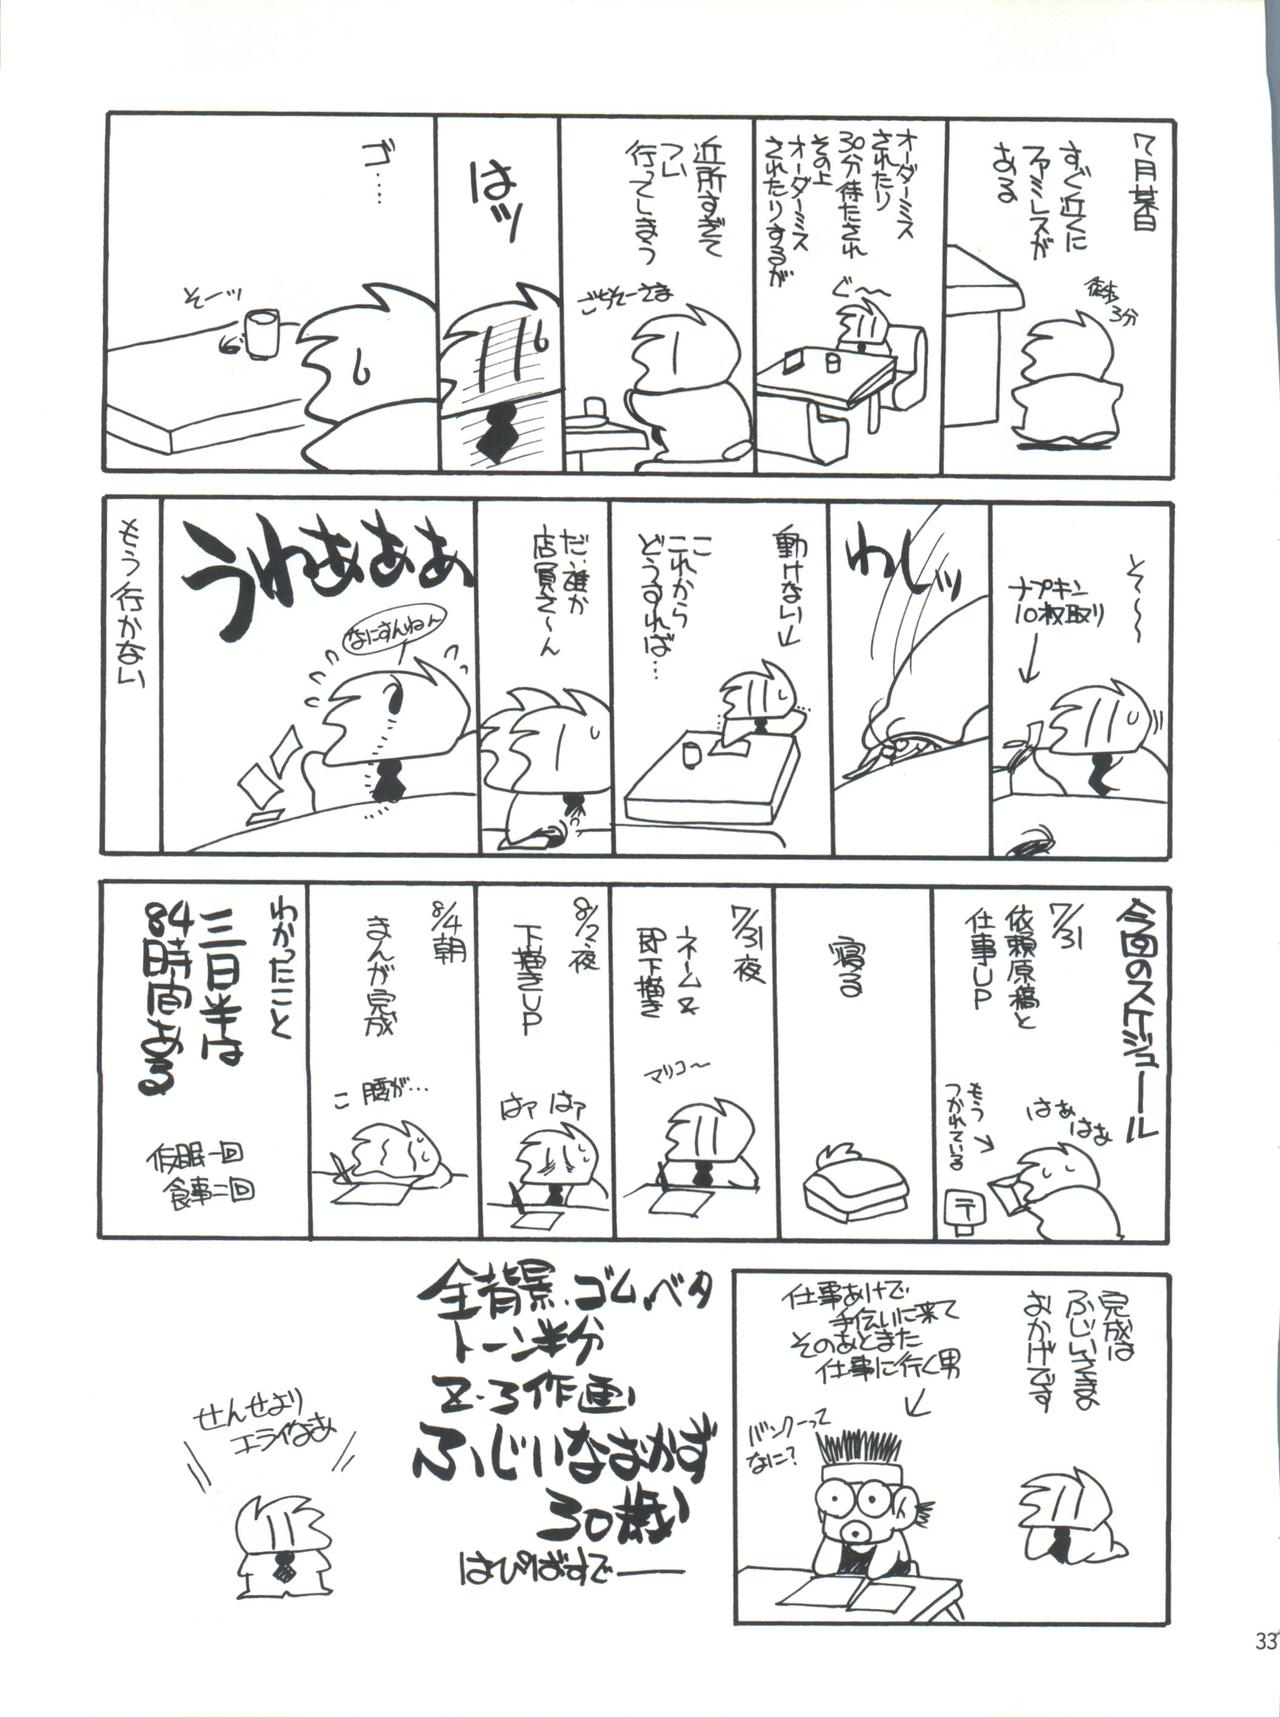 7月某日
すぐ近くに
ファミレスが
ある
徒歩
3分
オーダーミス
されたり
30分待たされ
その上
オーダーミス
されたりするが
ぐ〜〜
近所すぎて
つい
行ってしまう
ごちそーさま
はッ
ゴ……
そーッ
そ〜〜
ナプキン
10枚取り
わしッ
動けない
こ
これから
どうすれば…
だ、誰か
店員さ〜ん
うわぁぁぁ
なにすんねん
もう行かない
今回のスケジュール
7/31
依頼原稿と
仕事UP
はぁ
はぁ
もう
つかれている
〒
寝る
7/31夜
ネーム&
即下描き
マリコ〜
8/2夜
下描きUP
はァ はァ
8/4朝
まんが完成
こ 腰が…
わかったこと
三日半は
84時間ある
仮眠一回
食事二回
完成は
ふじいさまの
おかげです
仕事あけで
手伝いに来て
そのあとまた
仕事に行く男
バンクーって
なに?
全背景、ゴム、ベタ
トーン半分
2・3作画
ふじいなおかず
30歳
はぴばすでー
せんせより
エライなあ
33